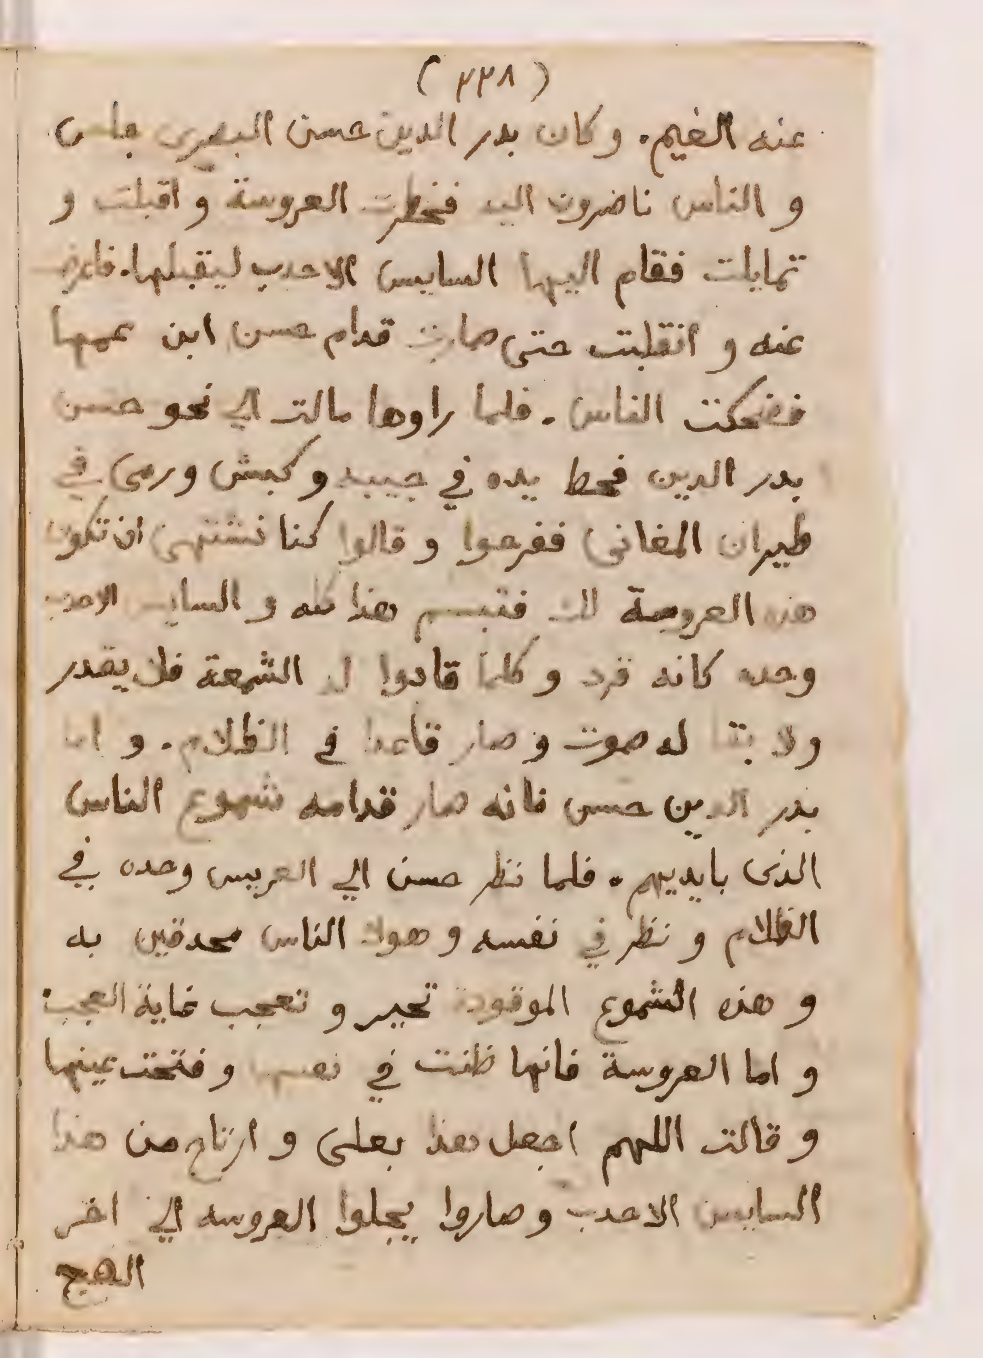 (٢٢٨)
عنه الغيم. وكان بدر الدين حسن البصرى جالس
و الناس ناضرون اليه فخطرت العروسة و اقبلت و
تمايلت فقام اليها السايس الاحدب ليقبلها. فاعرضت
عنه و انقلبت حتى صارت قدام حسن ابن عمها
فضحكت الناس. فلما راوها مالت الي نحو حسن
بدر الدين فحط يده في جيبه و كبش و رمى في
طيران المغانى ففرحوا و قالوا كنا نشتهى ان تكون
هذه العروسة لك فتبسم هذا كله و السايس الاحدب
وحده كانه قرد و كلما قادوا له الشمعة فلا يقدر
ولا بقا له صوت و صار قاعدا في الظلام. و اما
بدر الدين حسن فانه صار قدامه شموع الناس
الذى بايديهم. فلما نظر حسن الي العريس وحده في
الظلام و نظر في نفسه و هولا الناس محدقين به
و هذه الشموع الموقودة تحير و تعجب غاية العجب
و اما العروسة فانها ظنت في نفسها و فتحت عينها
و قالت اللهم اجعل هذا بعلى و ارتاح من هذا
السايس الاحدب و صاروا يجلوا العروسه الي اخر